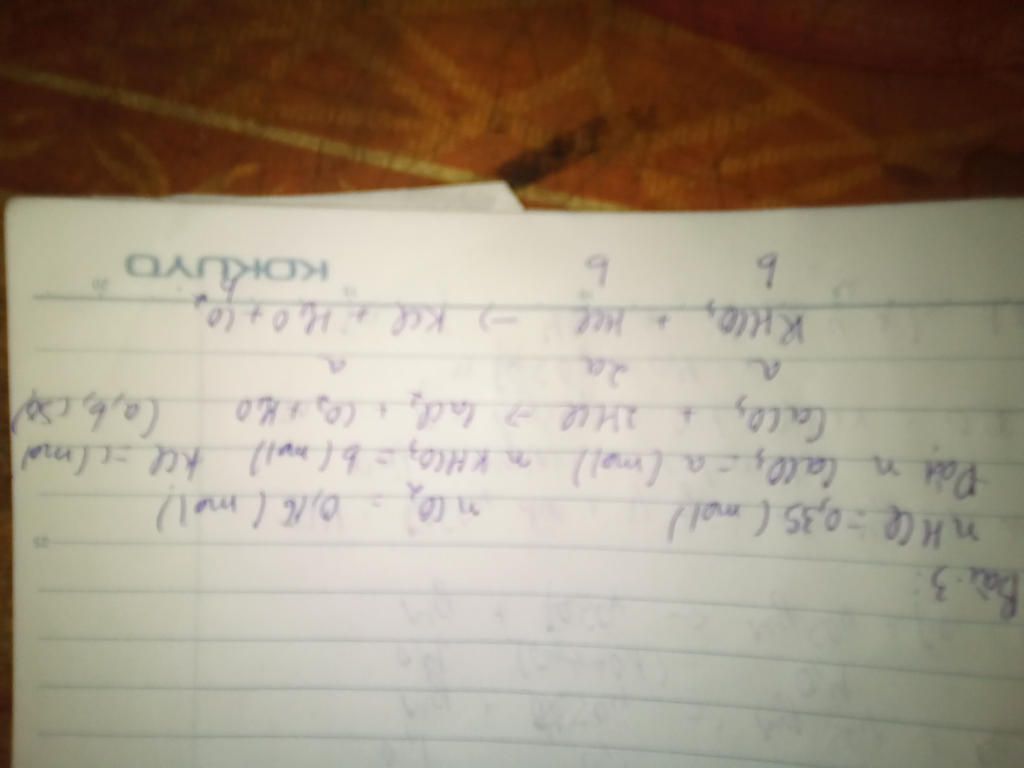 Bài 3:
nHCl = 0,35 (mol) nCO2 = 0,16 (mol)
Đặt n CaCO3 = a (mol) n KHCO3 = b (mol) KCl = c (mol
CaCO3 + 2HCl -> CaCl2 + CO2 + H2O (a,b,c>0)
a 2a a
KHCO3 + HCl -> KCl + H2O + CO2
b b b
KOKUYO